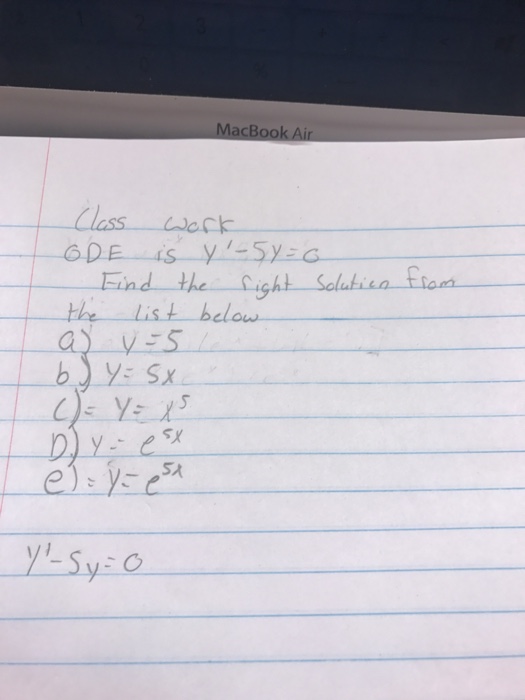 MacBook Air
Class work
ODE is y'-5y=0
Find the right solution from
the list below
a) y=5
b) y=5x
c)= y= x⁵
D) y= e⁵ˣ
e)= y= e⁵ˣ
y'-5y=0